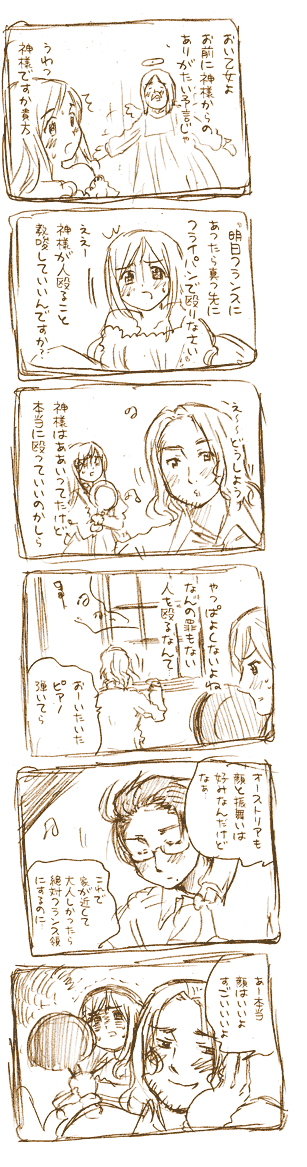 おい乙女よ
お前に神様からの
ありがたい予言じゃ
うわっ
神様ですか貴方
明日フランスに
あったら真っ先に
フライパンで殴りなさい
ええー
神様が人殴ること
教唆していいんですか?
え〜〜どうしよう
神様はああいってたけど
本当に殴っていいのかしら
やっぱよくないよね
なんの罪もない
人を殴るなんて
おーいたいた
ピアノ
弾いてら
オーストリアも
顔と振舞いは
好みなんだけど
なぁ
これで
家が近くて
大人しかったら
絶対フランス領
にするのに
あー本当
顔はいいよ
すごいいいよ